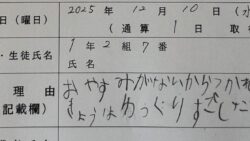 日(曜日) 2025年12月10日(水
(通算 1日 取
・生徒氏名 1年2組7番
氏名
理由 おやすみがないからつかれ
記載欄) きょうはゆっくりすごした